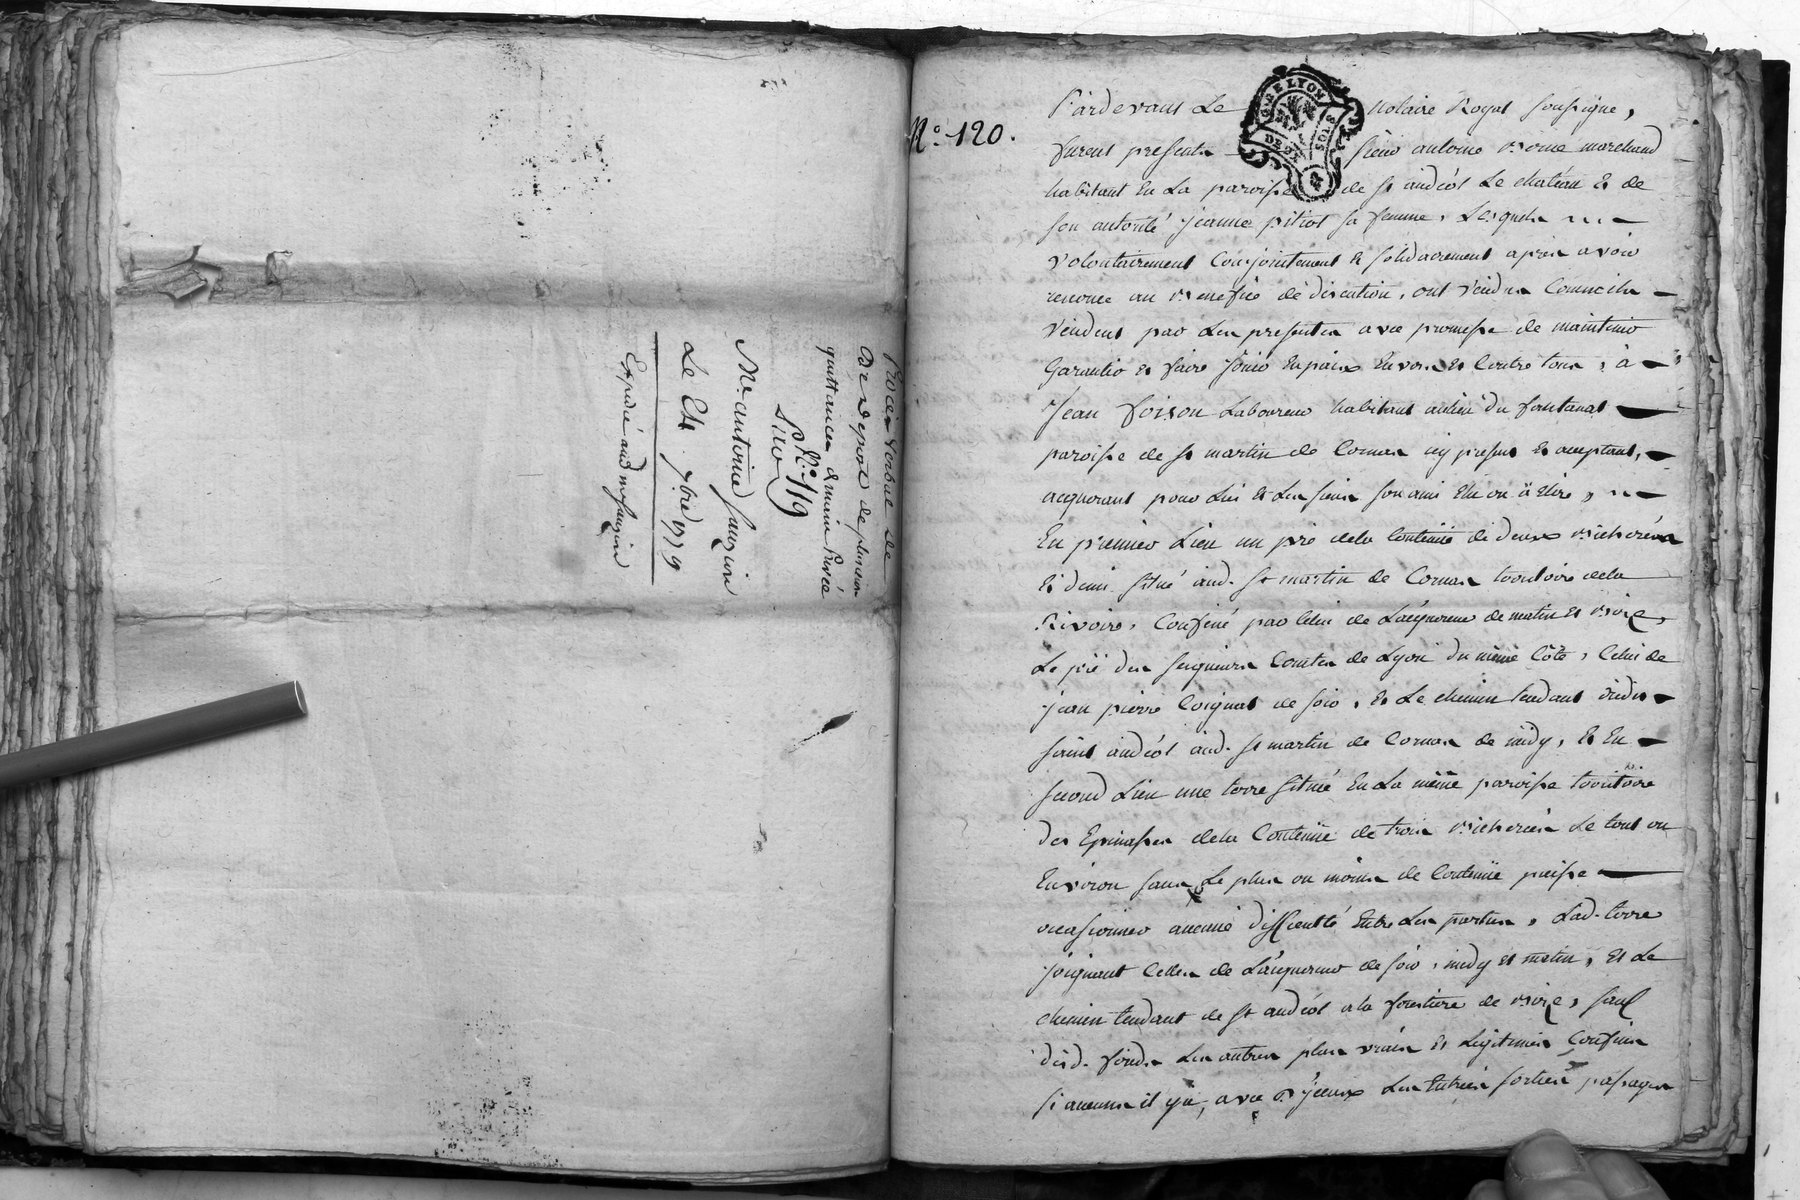 Procès Verbal de
De Deport de plusieurs
quittances & main levée
N.° 119
Sieur
M.e antoine fauzoin
Le 24 7.bre 1779
Expedié aud m.
N.° 120.
Pardevant Le notaire Royal soussigné,
GNE LYON
DE GX
8 SOLS
furent presents sieur antoine marchand
habitant en La paroisse de st andéol Le chatéau & de
son autorité jeanne pitiot sa femme, Lesquels
volontairement Conjointement & solidairement aprés avoir
renoncé au benefice de discution, ont vendus Comme ils
vendent par Les presentes avec promesse de maintenir
Garantir & faire jouir en paix Envers & Contre tous, à
Jean foison Laboureur habitant au lieu du fontanat
paroisse de st martin de Cornas icy present & acceptant,
acquerant pour Lui & Les siens son ami élu ou à élire,
En premier Lieu un pré de la Contenüe de deux bicherées
& demi situé aud. st martin de Cornas territoire de la
Rivoire, Confiné par Celui de L'acquereur de matin & bize,
Le pré des seigneurs Comtes de Lyon du même Côté, Celui de
jean pierre Coignet de soir, & Le chemin tendant dud.
saint andéol aud. st martin de Cornas de midy, & En
second Lieu une terre située En La même paroisse territoire
des Epinasses de la Contenüe de trois bicherées Le tout ou
Environ sans Le plus ou moins de Contenüe puisse
occasionner aucune difficulté Entre Les parties, Lad. terre
joignant Celles de L'acquereur de soir, midy & matin, & Le
chemin tendant de st andéol a la de bize, sauf
desd. fonds Les autres plus vrais & Legitimes Confins
si aucuns il y a, avec Les Entrées sorties passages